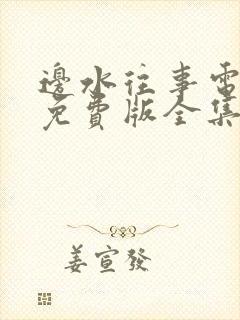 邊水往事電
免費版全集
姜宣發